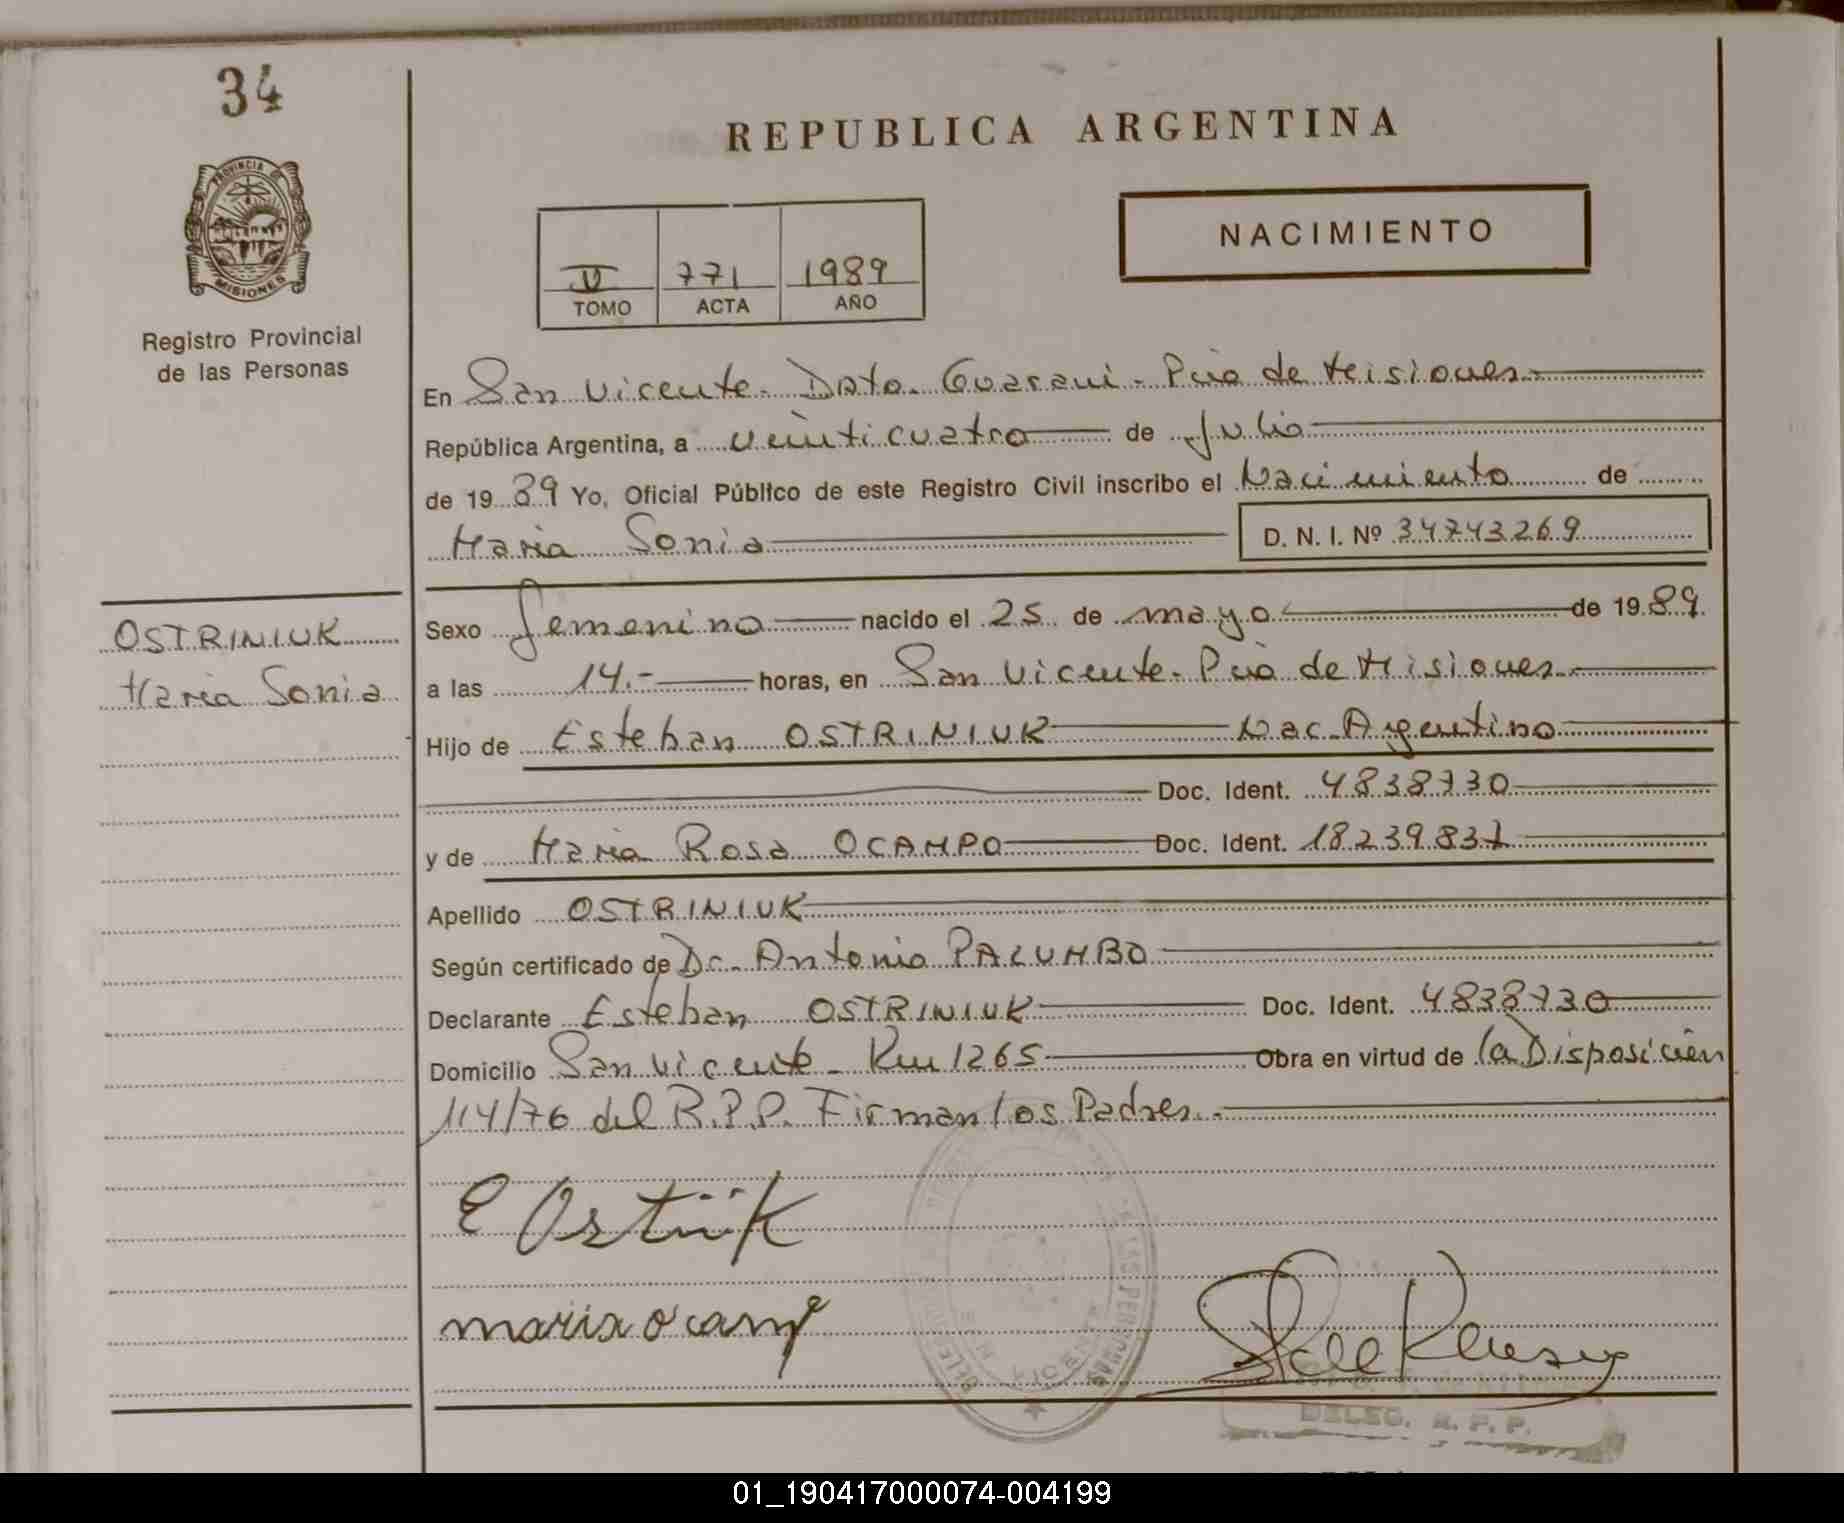 34
REPUBLICA ARGENTINA
PROVINCIA DE
MISIONES
Registro Provincial
de las Personas
NACIMIENTO
II 771 1989
TOMO ACTA AÑO
En San Vicente - Dpto. Guarani - Pcia de Misiones.-
República Argentina, a veinticuatro de Julio
de 1989 Yo, Oficial Público de este Registro Civil inscribo el Nacimiento de
Maria Sonia D. N. I. Nº 34743269
OSTRINIUK
Maria Sonia
Sexo femenino nacido el 25 de mayo de 1989.
a las 14.- horas, en San Vicente - Pcia de Misiones.-
Hijo de Esteban OSTRINIUK Nac. Argentino
Doc. Ident. 4838730
y de Maria Rosa OCAMPO Doc. Ident. 18239831
Apellido OSTRINIUK
Según certificado de Dr. Antonio PALUMBO
Declarante Esteban OSTRINIUK Doc. Ident. 4838730
Domicilio San Vicente - Km 1265 Obra en virtud de la Disposición
114/76 del R.P.P. Firman los Padres.-
E Ostiik
maria ocampo
DE LAS PERSONAS
SAN VICENTE
DELEG. R. P. P.
01_190417000074-004199